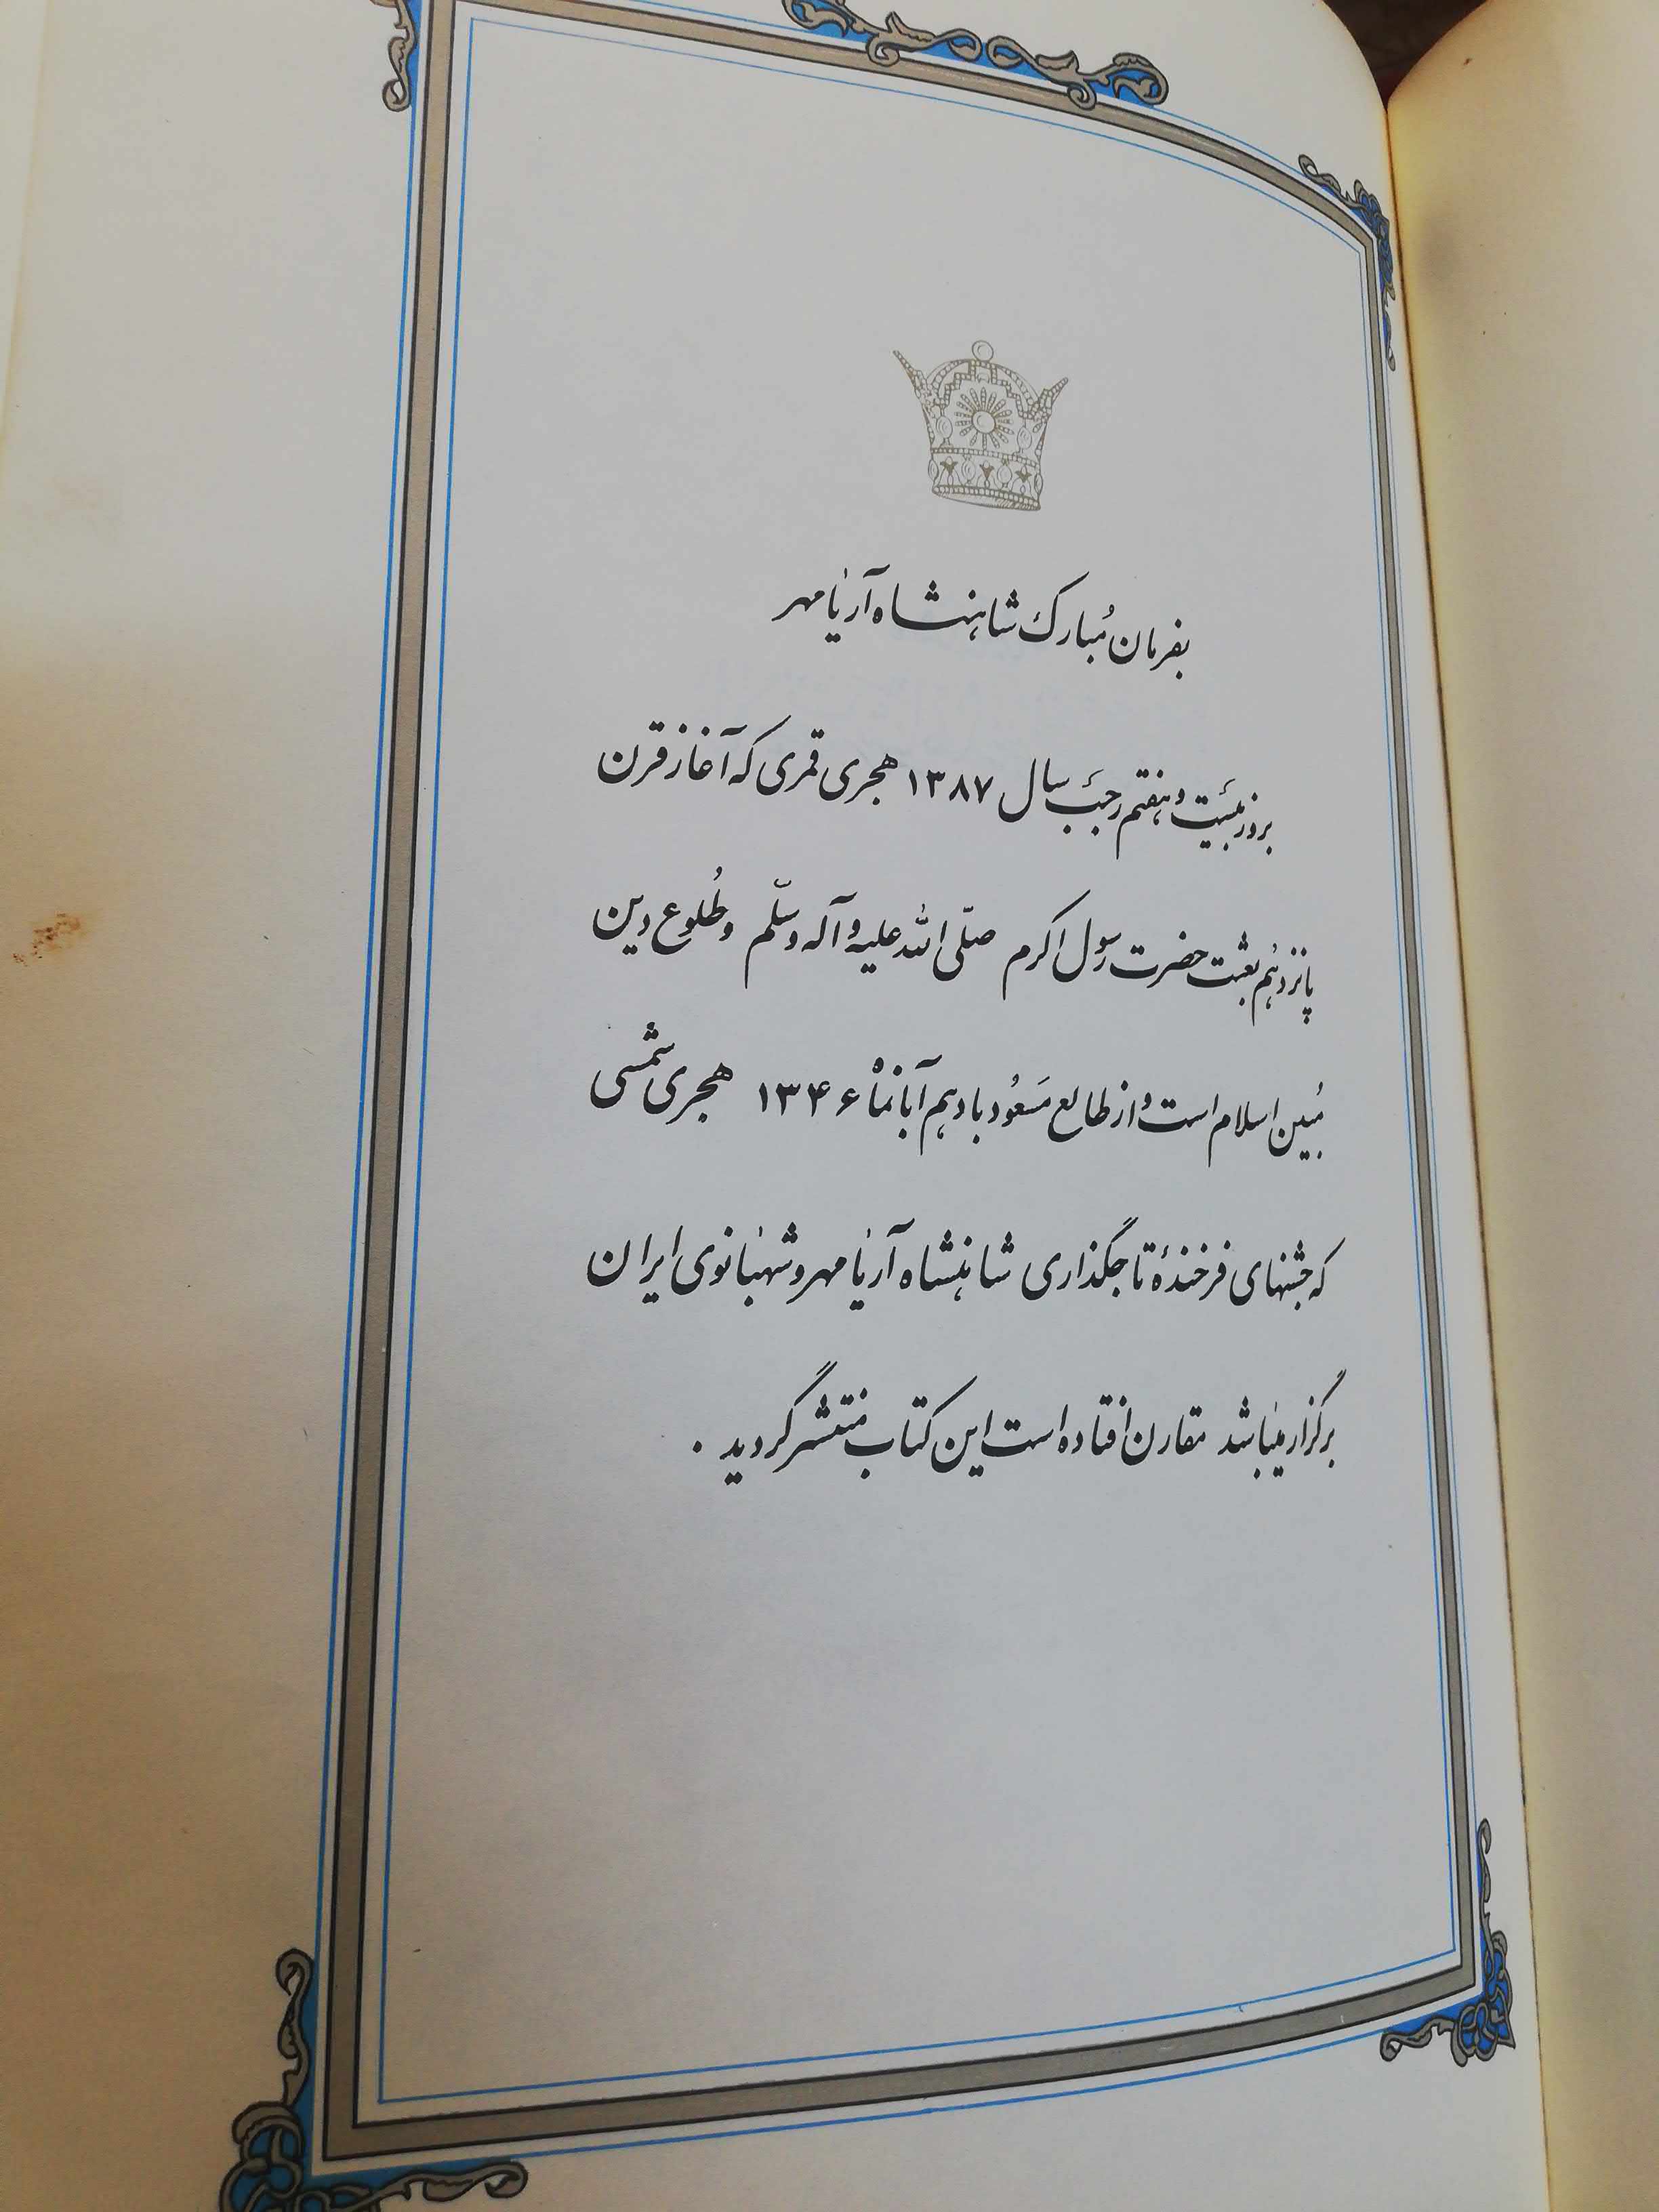 بفرمان مُبارک شاهنشاه آریامهر
بروز بیست و هفتم رجب سال ۱۳۸۷ هجری قمری که آغاز قرن
پانزدهُم بعثت حضرت رسول اکرم صلّی الله علیه و آله و سلّم و طُلوع دین
مُبین اسلام است و از طالع مَسعُود با دهم آبانماه ۱۳۴۶ هجری شمسی
که جشنهای فرخندهٔ تاجگذاری شاهنشاه آریامهر و شهبانوی ایران
برگزار میباشد مقارن افتاده است این کتاب منتشر گردید .